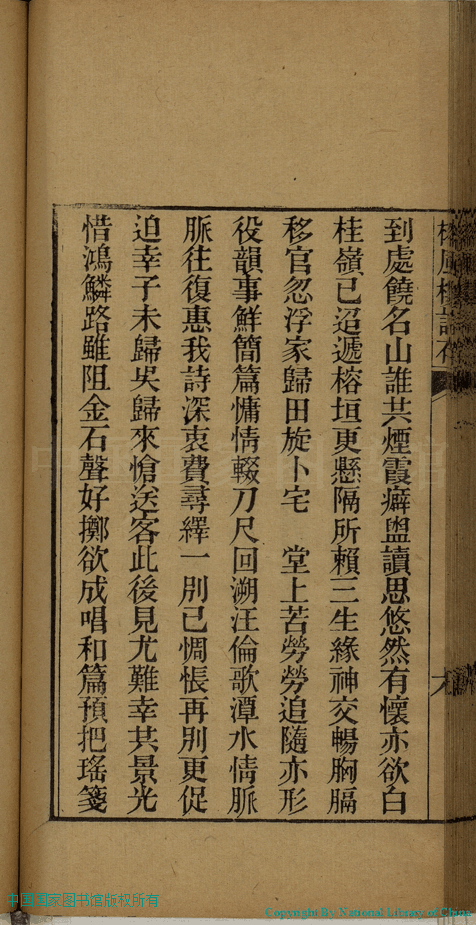 到處饒名山誰共煙霞癖盥讀思悠然有懷亦欲白
桂嶺已迢遞榕垣更懸隔所賴三生緣神交暢胸膈
移官忽浮家歸田旋卜宅　堂上苦勞勞追隨亦形
役韻事鮮簡篇慵情輟刀尺回溯汪倫歌潭水情脈
脈往復惠我詩深衷費尋繹一別已惆悵再別更促
迫幸子未歸吳歸來愴送客此後見尤難幸共景光
惜鴻鱗路雖阻金石聲好擲欲成唱和篇預把瑤箋
中国国家图书馆版权所有
Copyright By National Library of China